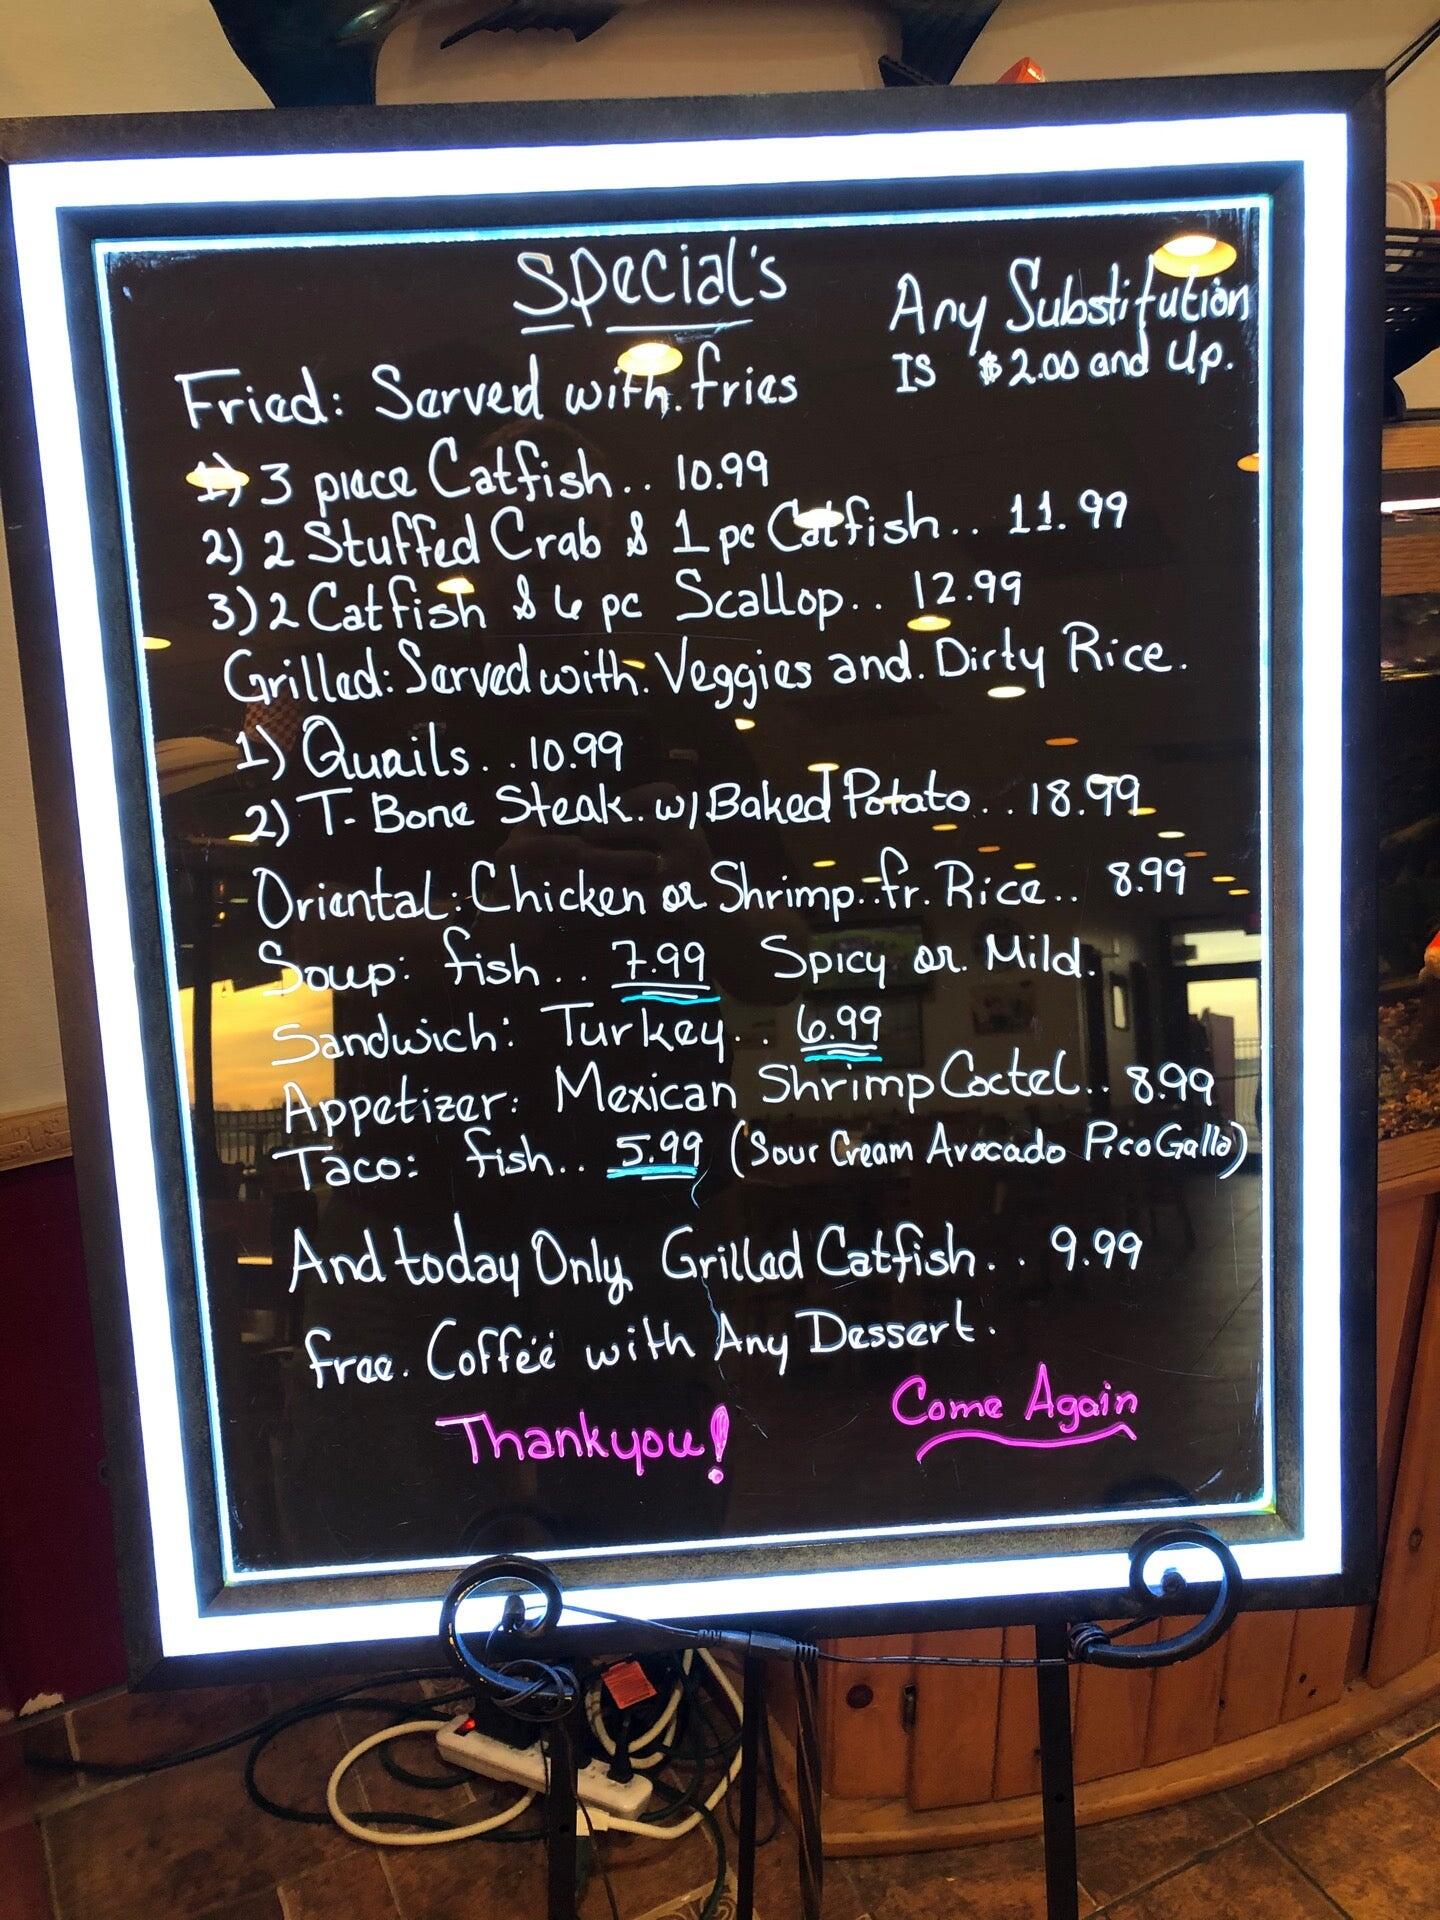 Special's
Any Substitution
IS $2.00 and Up.
Fried: Served with. fries
1) 3 piece Catfish.. 10.99
2) 2 Stuffed Crab & 1 pc Catfish.. 11.99
3) 2 Catfish & 6 pc Scallop.. 12.99
Grilled: Served with. Veggies and. Dirty Rice.
1) Quails.. 10.99
2) T-Bone Steak. w/ Baked Potato.. 18.99
Oriental: Chicken or Shrimp..fr. Rice.. 8.99
Soup: fish.. 7.99 Spicy or. Mild.
Sandwich: Turkey.. 6.99
Appetizer: Mexican Shrimp Coctel.. 8.99
Taco: fish.. 5.99 (Sour Cream Avocado Pico Gallo)
And today Only, Grilled Catfish.. 9.99
free. Coffee with Any Dessert.
Come Again
Thankyou!